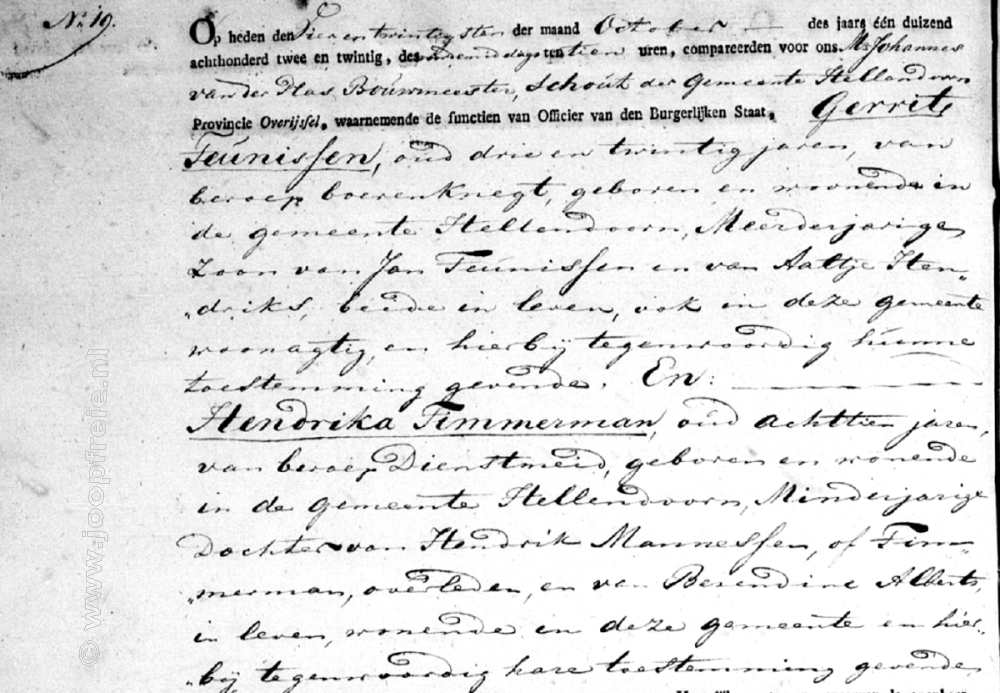 No. 19.
Op heden den Vier en twintigsten der maand October des jaars één duizend
achthonderd twee en twintig, des voormiddags ten tien uren, compareerden voor ons. Mr. Johannes
van der Plas Bouwmeester, Schout der Gemeente Hellendoorn
Provincie Overijssel, waarnemende de functien van Officier van den Burgerlijken Staat, Gerrit
Teunissen, oud drie en twintig jaren, van
beroep boerenknegt, geboren en woonende in
de gemeente Hellendoorn, Meerderjarige
Zoon van Jan Teunissen en van Aaltje Hen„
„driks, beide in leven, ook in deze gemeente
woonagtig, en hierbij tegenwoordig hunne
toestemming gevende. En:
Hendrika Timmerman, oud achttien jaren,
van beroep Dienstmeid, geboren en wonende
in de gemeente Hellendoorn, Minderjarige
Dochter van Hendrik Mannessen, of Tim„
„merman, overleden, en van Berendine Alberts,
in leven, wonende in deze gemeente en hier„
„bij tegenwoordig hare toestemming gevende
© www.joopfrefe.nl